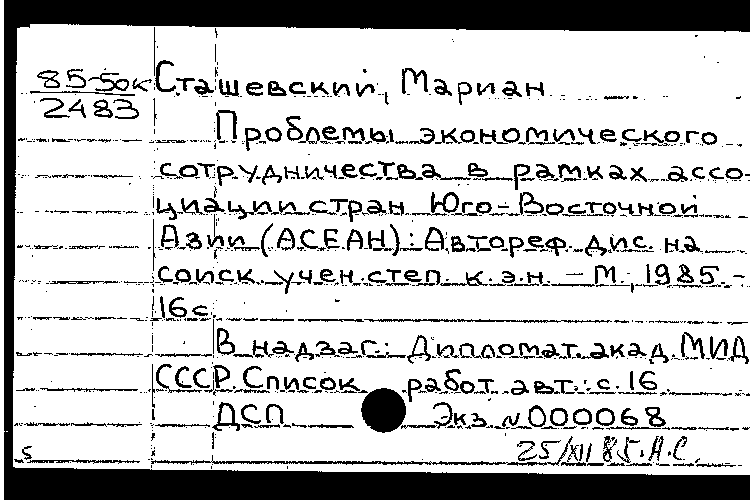 85-50к Сташевский, Мариан
2483
Проблемы экономического
сотрудничества в рамках ассо-
циации стран Юго-Восточной
Азии (АСЕАН): Автореф. дис. на
соиск. учен. степ. к.э.н. - М., 1985. -
16 с.
В надзаг.: Дипломат. акад. МИД
СССР. Список работ авт.: с. 16.
ДСП Экз. N 000068
25/XII 85. А.С.
5